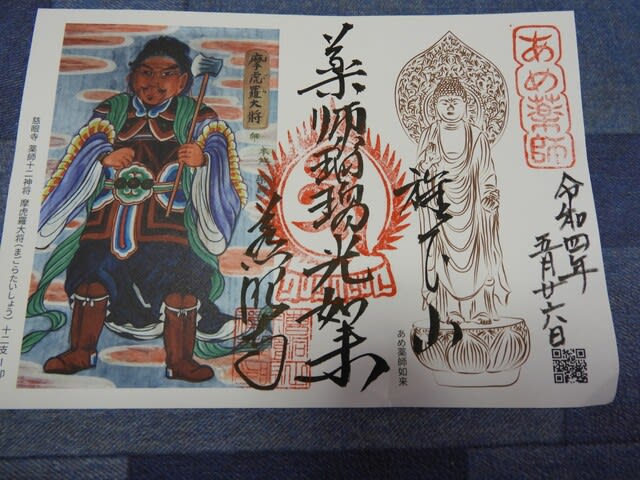 あめ薬師
令和四年
五月廿六日
山
あめ薬師如来
薬師瑠璃光如来
慈眼寺
摩虎羅大将
卯
慈眼寺 薬師十二神将 摩虎羅大将(まごらたいしょう) 十二支-卯